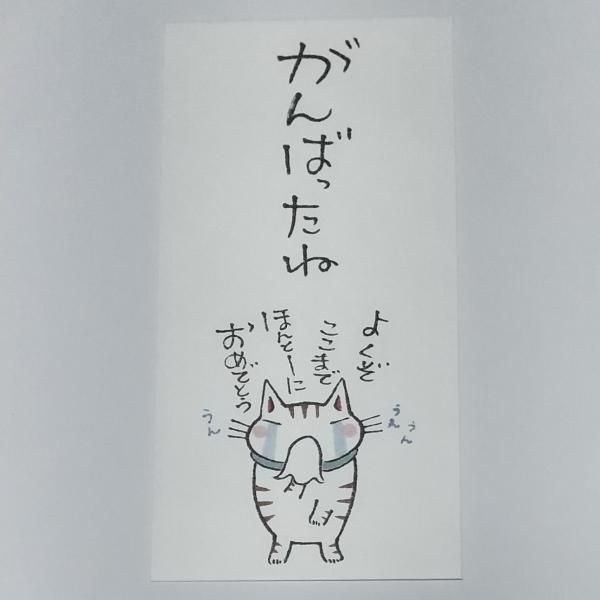 がんばったね
よくぞ
ここまで
ほんとーに
おめでとう
うん
うんうん